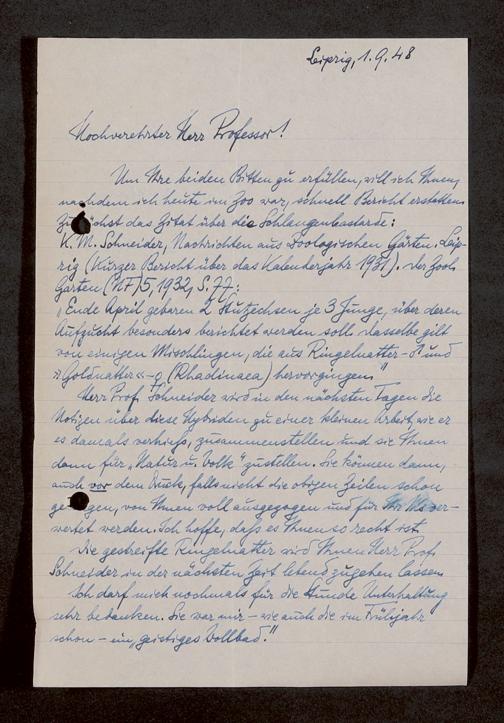 Leipzig, 1.9.48
Hochverehrter Herr Professor!
Um Ihre beiden Bitten zu erfüllen, will ich Ihnen,
nachdem ich heute im Zoo war, schnell Bericht erstatten.
Zunächst das Zitat über die Schlangenbastarde:
K. M. Schneider, Nachrichten aus Zoologischen Gärten. Leip-
zig (Kurzer Bericht über das Kalenderjahr 1931). Der Zool.
Garten (NF) 5, 1932, S. 77:
„Ende April gebaren 2 Stutzechsen je 3 Junge, über deren
Aufzucht besonders berichtet werden soll. Dasselbe gilt
von einigen Mischlingen, die aus Ringelnatter-♂ und
»Goldnatter«-♀ (Rhadinaea) hervorgingen."
Herr Prof. Schneider wird in den nächsten Tagen die
Notizen über diese Hybriden zu einer kleinen Arbeit, wie er
es damals verhieß, zusammenstellen und sie Ihnen
dann für „Natur u. Volk" zustellen. Sie können dann,
auch vor dem Druck, falls nicht die obigen Zeilen schon
genügen, von Ihnen voll ausgezogen und für Ihr ver-
wertet werden. Ich hoffe, daß es Ihnen so recht ist.
Die gestreifte Ringelnatter wird Ihnen Herr Prof.
Schneider in der nächsten Zeit lebend zugehen lassen.
Ich darf mich nochmals für die Stunde Unterhaltung
sehr bedanken. Sie war mir – wie auch die im Frühjahr
schon – ein „geistiges Vollbad."